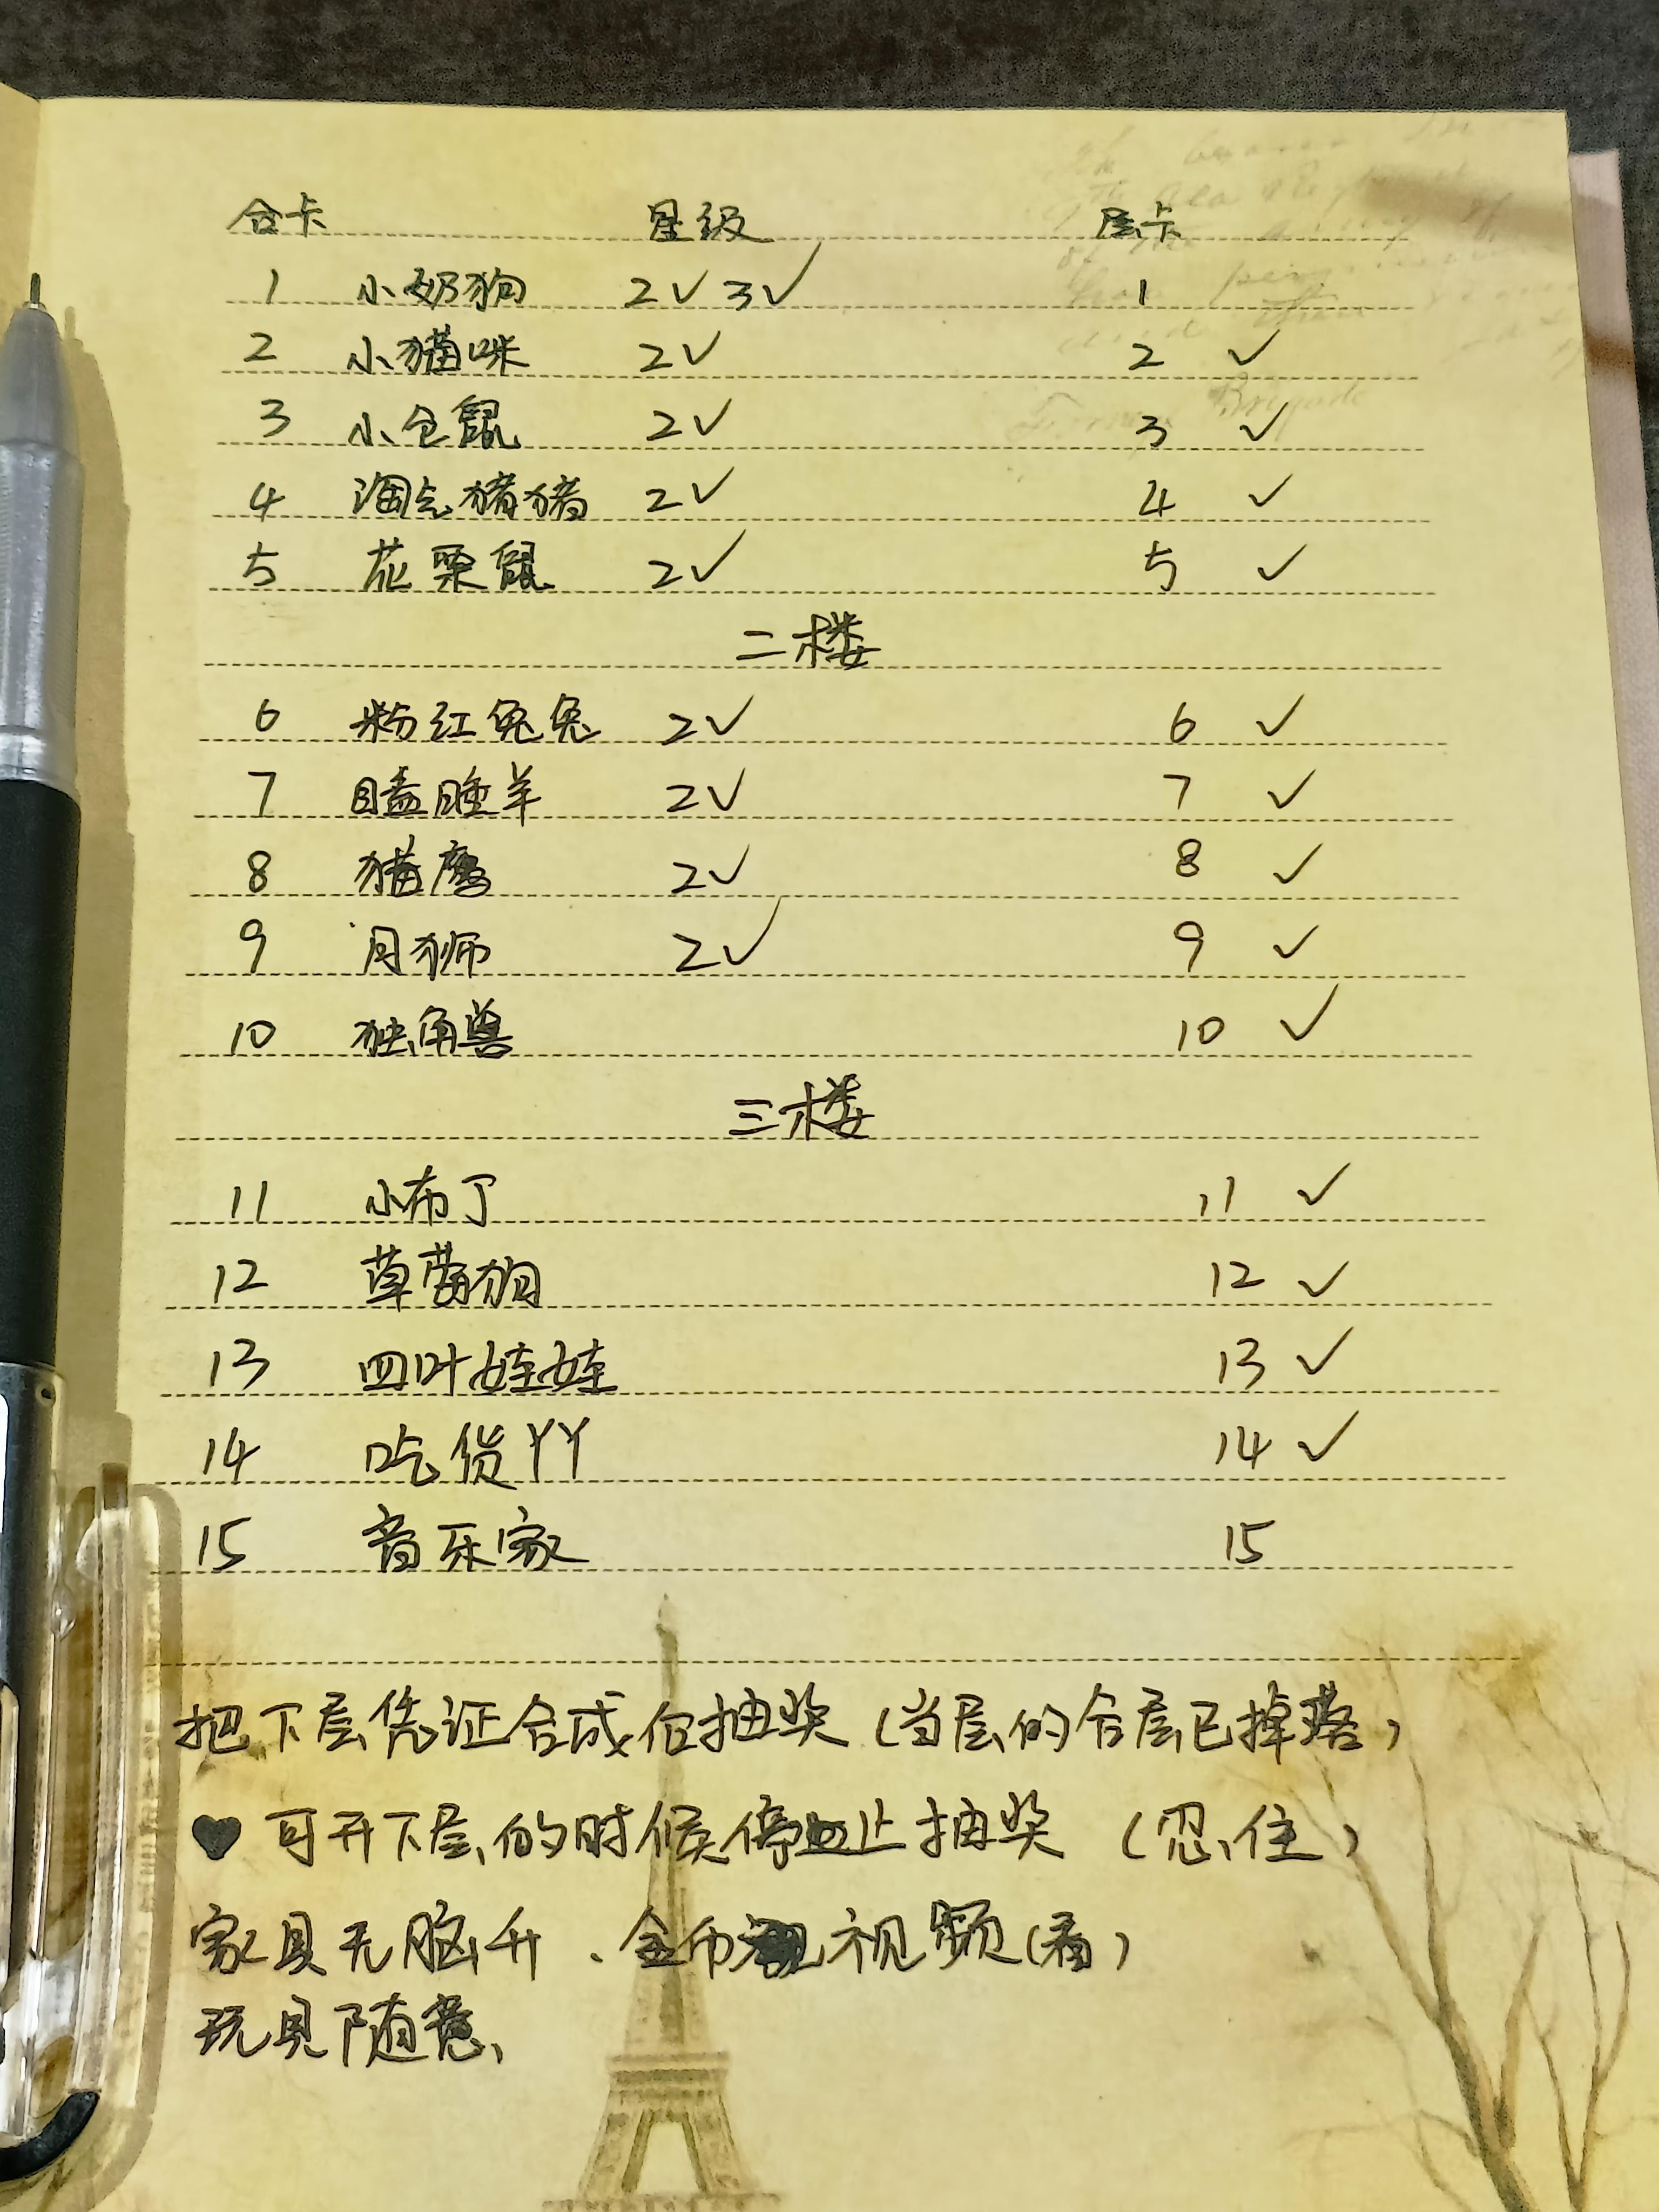 合卡 星级 层卡
1 小奶狗 2✓ 3✓ 1
2 小猫咪 2✓ 2 ✓
3 小仓鼠 2✓ 3 ✓
4 淘气猪猪 2✓ 4 ✓
5 花栗鼠 2✓ 5 ✓
二楼
6 粉红兔兔 2✓ 6 ✓
7 瞌睡羊 2✓ 7 ✓
8 猫鹰 2✓ 8 ✓
9 月狮 2✓ 9 ✓
10 独角兽 10 ✓
三楼
11 小布丁 11 ✓
12 草莓狗 12 ✓
13 四叶娃娃 13 ✓
14 吃货丫丫 14 ✓
15 音乐家 15
把下层凭证合成在抽奖(当层的合层已掉落)
♥可开下层的时候停止抽奖(忍住)
家具无脑升、金币视频(看)
玩具随意、
Brigade